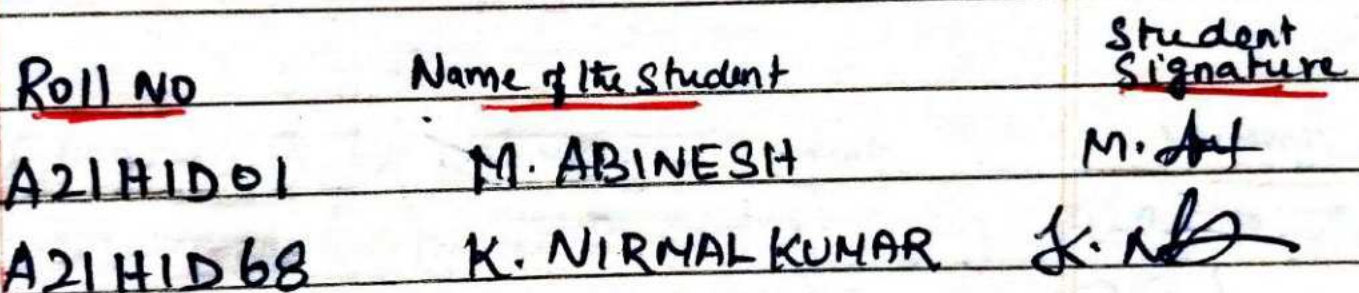 Roll NO Name of the Student Student Signature
A21HID01 M. ABINESH M.
A21HID68 K. NIRMAL KUMAR K.